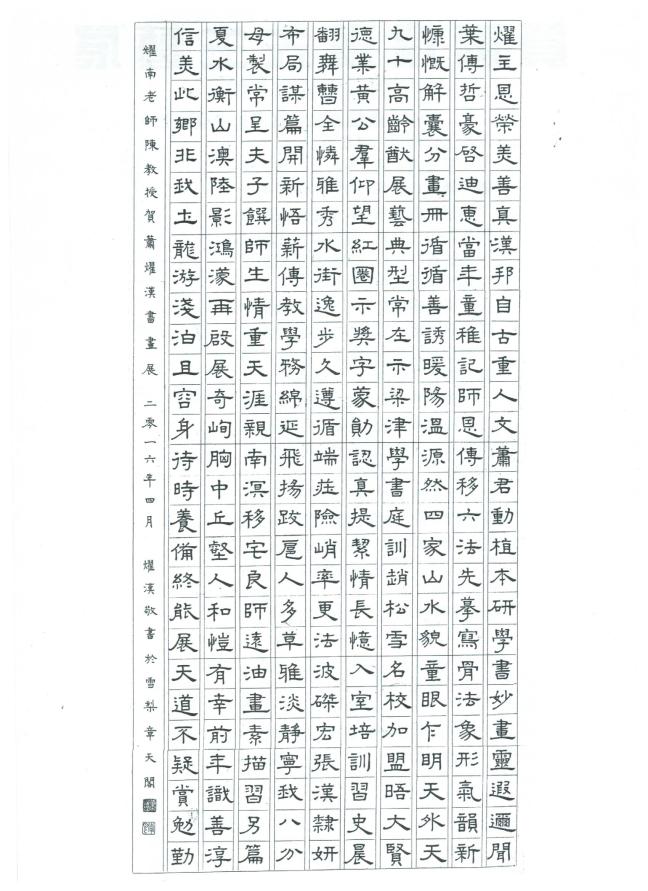 燿王恩榮美善真漢邦自古重人文蕭君動植本研學書妙畫靈遐邇聞
葉傳哲豪啓迪惠當年童稚記師恩傳移六法先摹寫骨法象形氣韻新
慷慨解囊分畫冊循循善誘暖陽溫源然四家山水貌童眼乍明天外天
九十高齡猷展藝典型常在示梁津學書庭訓趙松雪名校加盟晤大賢
德業黃公羣仰望紅圈示獎字蒙勛認真提挈情長憶入室培訓習史晨
翻舞轡全憐雅秀水街逸步久遵循端莊險峭率更法波磔宏張漢隸妍
布局謀篇開新悟薪傳教學務綿延飛揚跋扈人多草雅淡靜寧我八分
母製常呈夫子饌師生情重天涯親南溟移宅良師遠油畫素描習另篇
夏水衡山澳陸影鴻濛再啟展奇峋胸中丘壑人和愷有幸前年識善淳
信美此鄉非我土龍游淺泊且容身待時養備終能展天道不疑賞勉勤
燿南老師陳教授賀蕭燿漢書畫展 二零一六年四月 燿漢敬書於雪梨章天閣